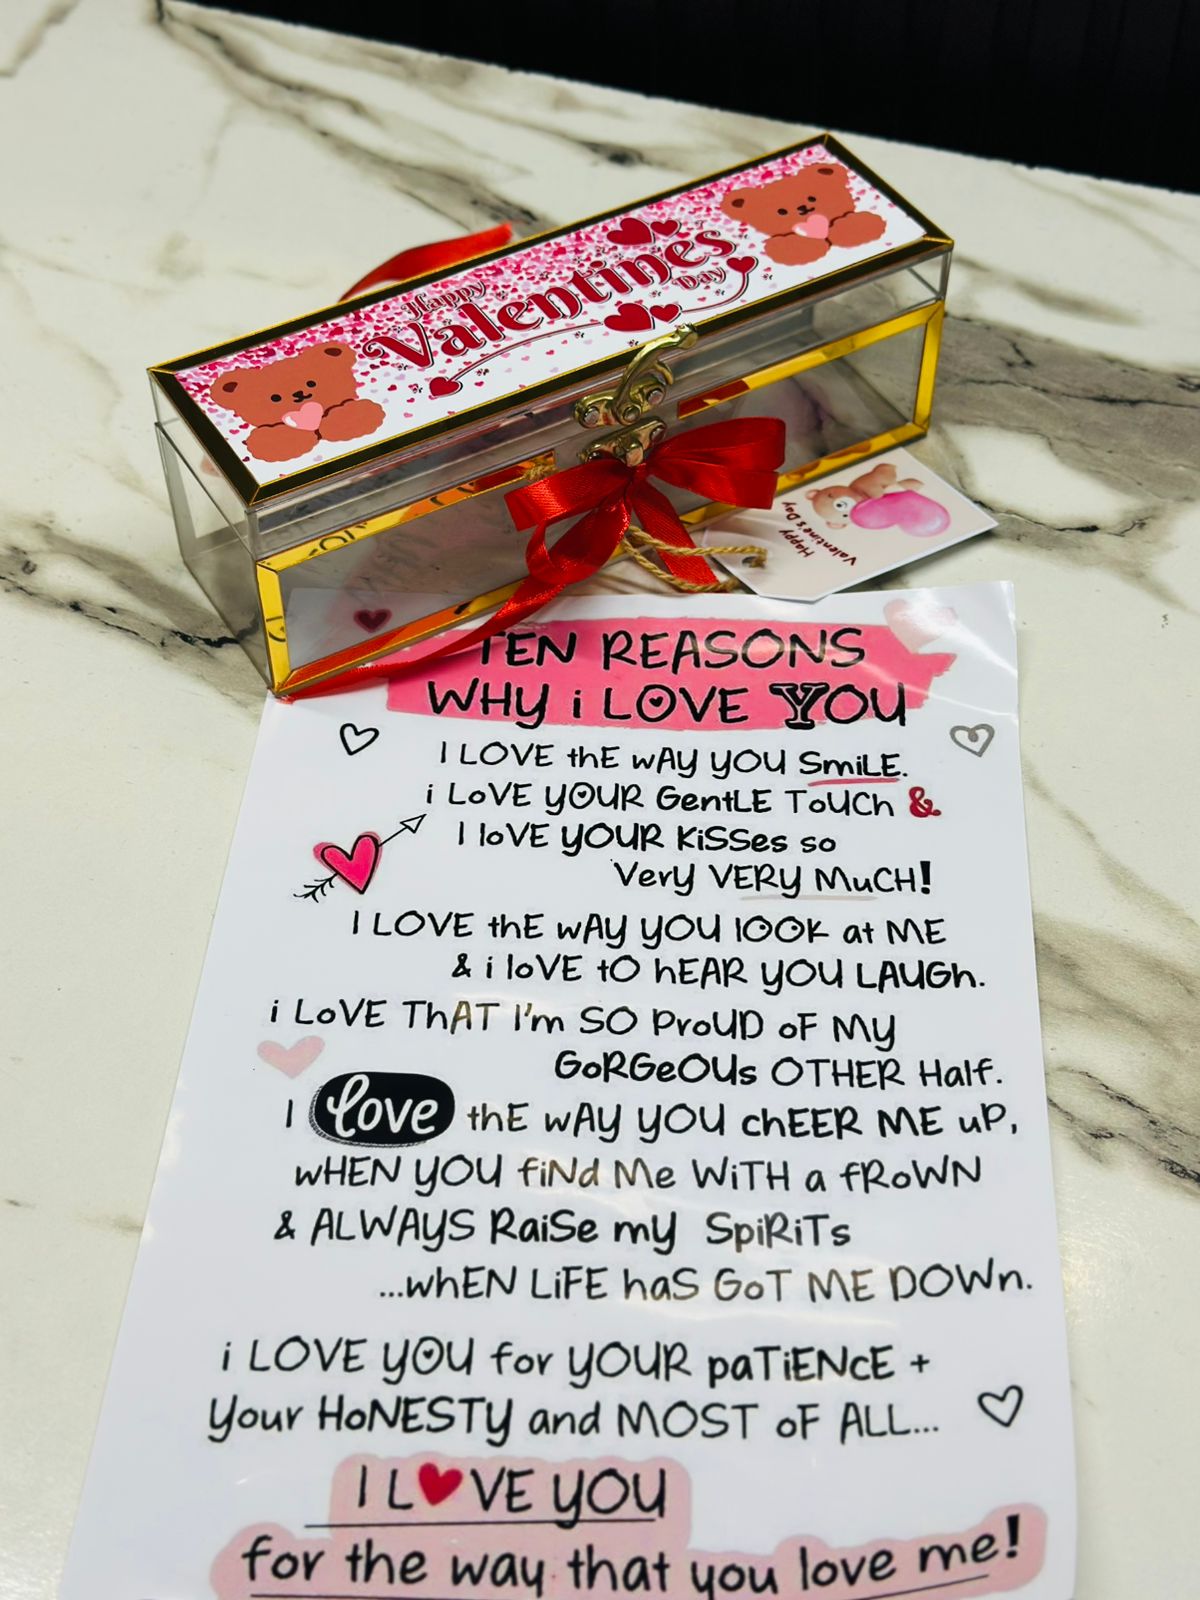 Happy
Valentines
Day
Happy
Valentine's Day
TEN REASONS
WHY i LOVE YOU
I LOVE thE wAY YOU SmiLE.
i LoVE YOUR GentLE ToUCh &
I loVE YOUR KiSSes so
VerY VERy MuCH!
I LOVE thE wAY YOU lOOK at ME
& i loVE tO hEAR YOU LAUGh.
i LoVE ThAT I'm SO ProUD oF MY
GoRGeOUs OTHER Half.
I love thE wAY YOU chEER ME uP,
wHEN YOU fiNd Me WiTH a fRoWN
& ALWAYS RaiSe my SpiRiTs
...whEN LiFE haS GoT ME DOWn.
i LOVE YOU for YOUR paTiENcE +
Your HoNESTY and MOST oF ALL...
I L♥VE YOU
for the way that you love me!